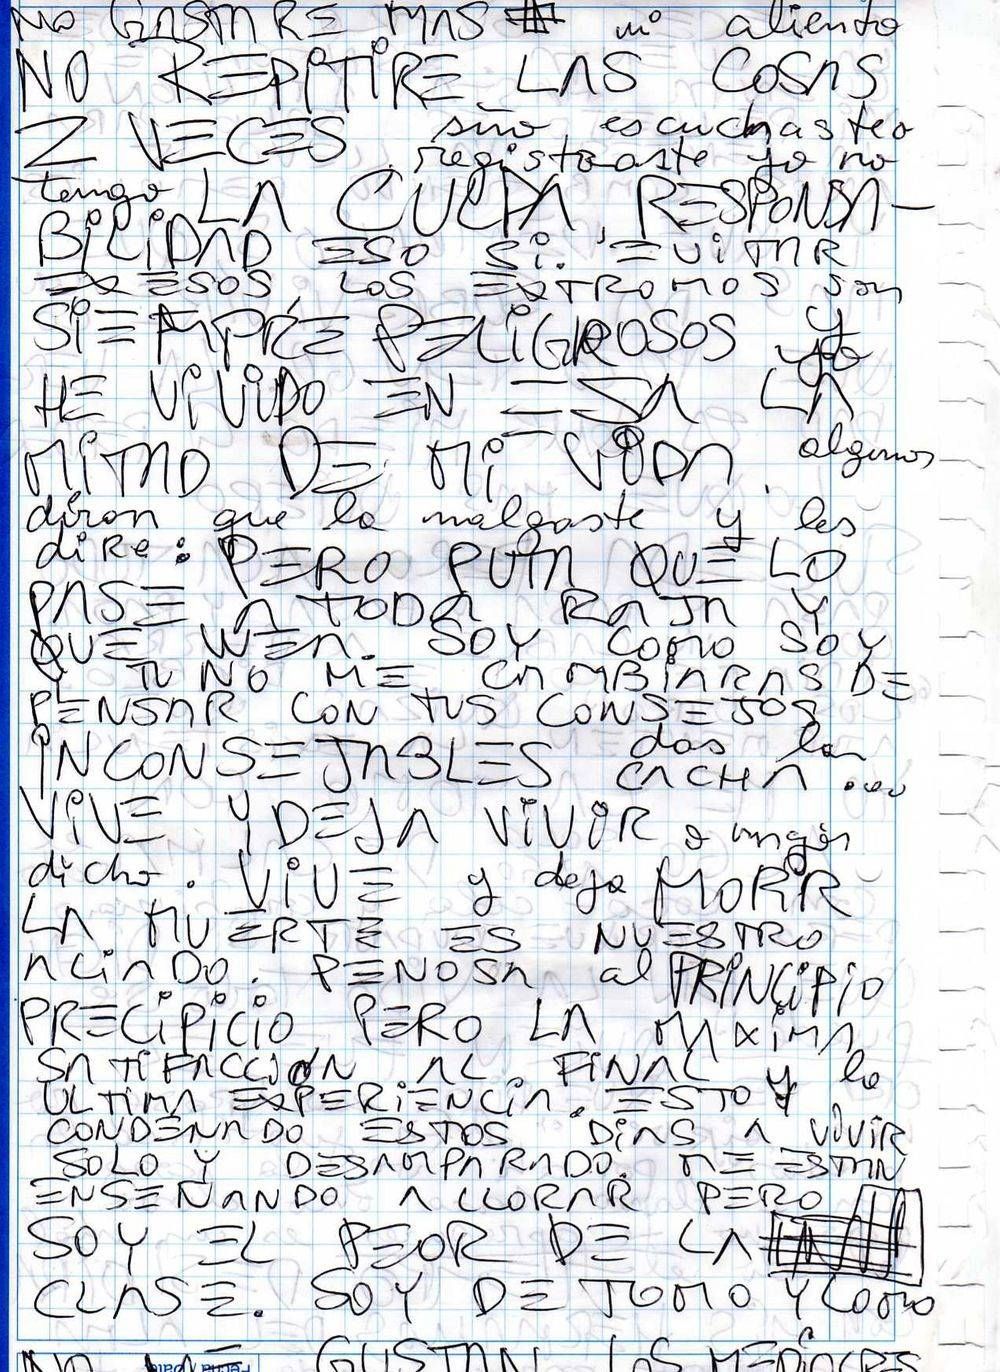 NO GASTARE MAS mi aliento
NO REPITIRE LAS COSAS
2 VECES sino escuchaste o
registraste yo no
tengo LA CULPA, RESPONSA-
BILIDAD ESO SI. EVITAR
EXESOS LOS EXTROMOS son
SIEMPRE PELIGROSOS y
yo
HE VIVIDO EN ESA LA
MITAD DE MI VIDA. algunos
diran que la malgaste y les
dire: PERO PUTA QUE LO
PASE A TODA RAJA Y
QUE WEA. SOY COMO SOY
Y TU NO ME CAMBIARAS DE
PENSAR CON TUS CONSEJOS
INCONSEJABLES das la
CACHA...
VIVE Y DEJA VIVIR o mejor
dicho. VIVE y deja MORIR
LA MUERTE ES NUESTRO
ALIADO. PENOSA al PRINCIPIO
PRECIPICIO PERO LA MAXIMA
SATIFACCION AL FINAL y la
ULTIMA EXPERIENCIA. ESTOY
CONDENADO ESTOS DIAS A VIVIR
SOLO Y DESAMPARADO. ME ESTAN
ENSEÑANDO A LLORAR PERO
SOY EL PEOR DE LA
CLASE. SOY DE TOMO Y LOMO
NO ME GUSTAN LAS